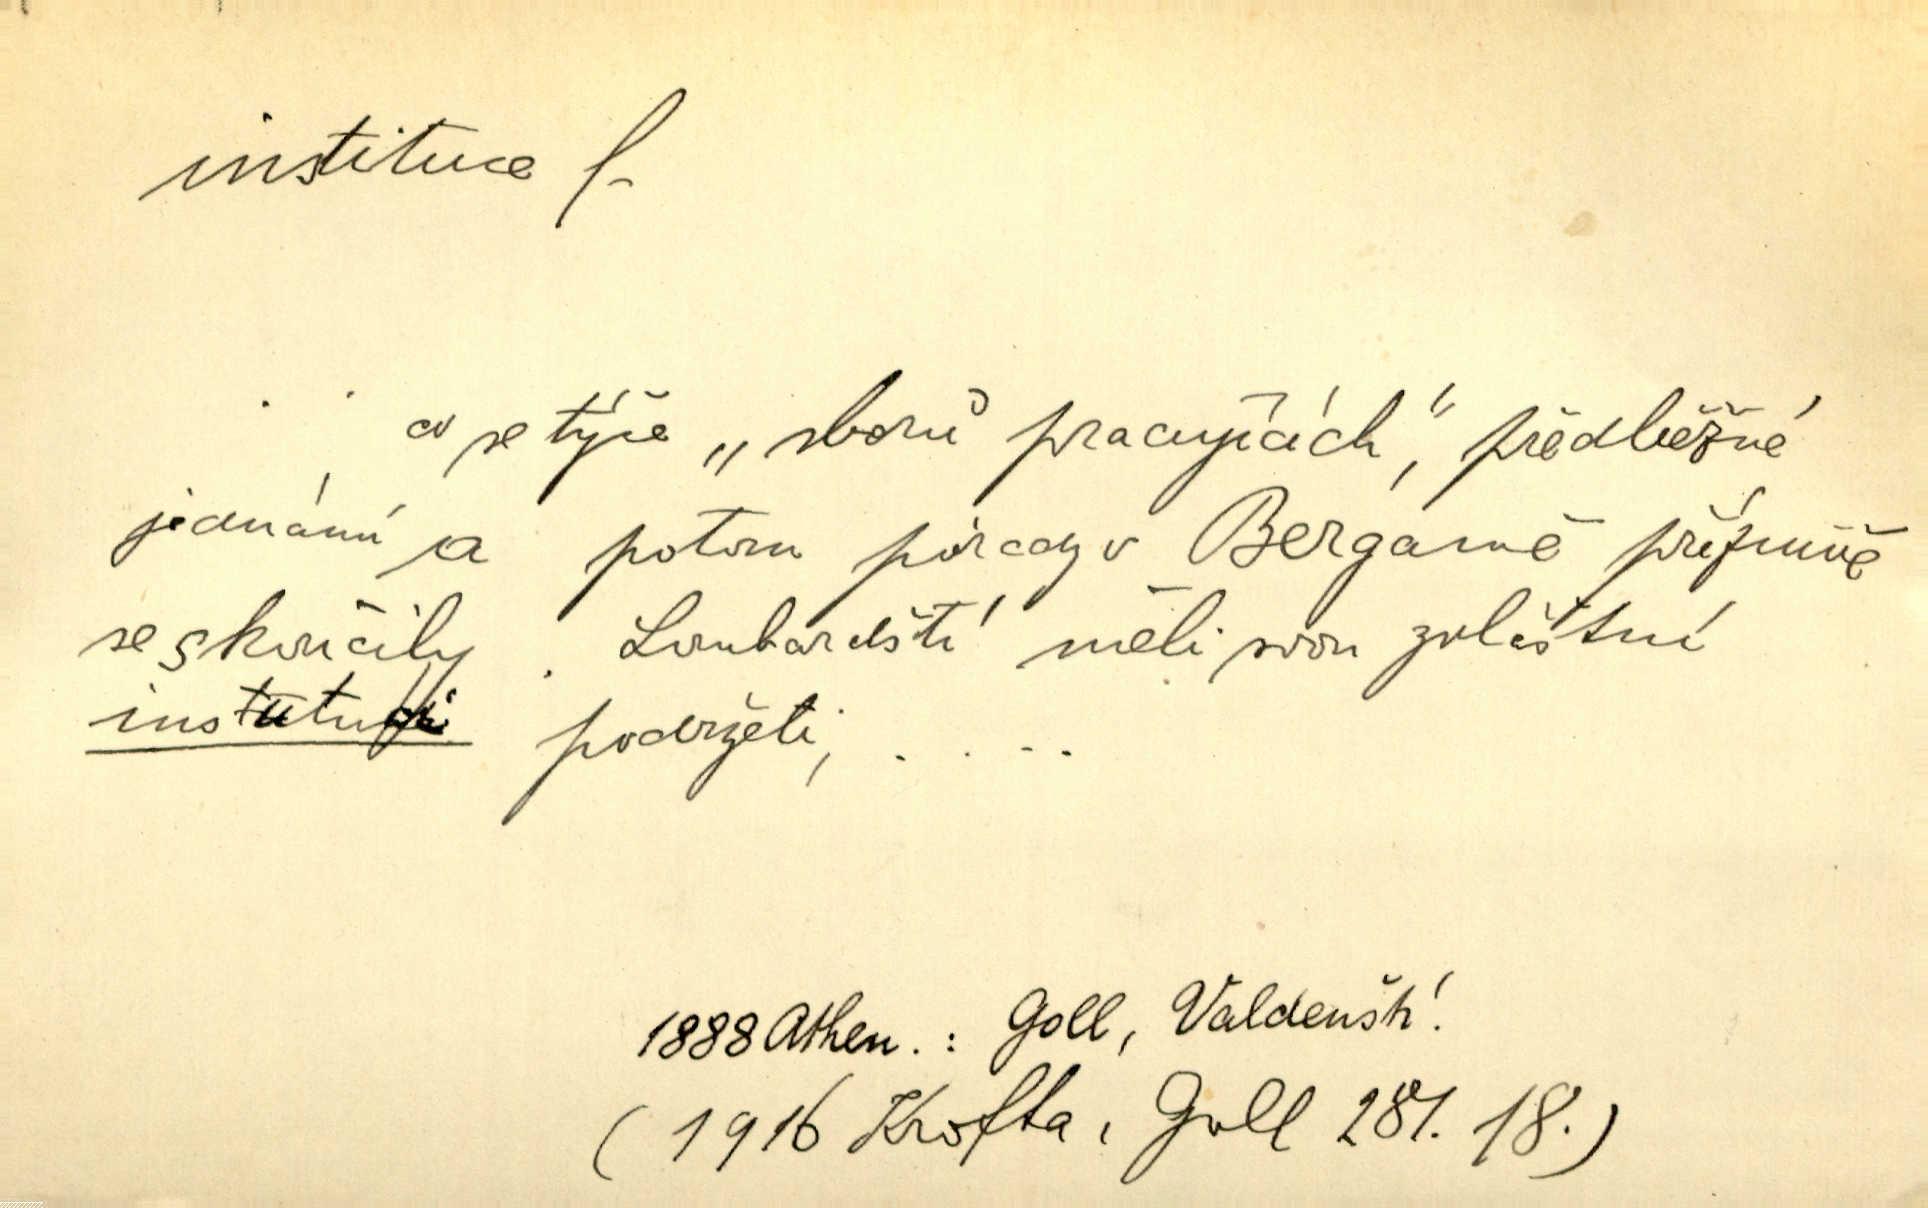 instituce f.
. . co se týče „sborů pracujících", předběžné
jednání a potom porady v Bergamě příznivě
se skončily. Lombardští měli svou zvláštní
instituci podržeti, . . . .
1888 Athen. : Goll, Valdenští.
(1916 Krofta, Goll 281. 18.)